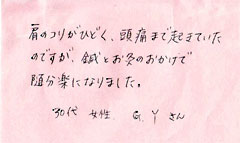 肩のコリがひどく、頭痛まで起きていた
のですが、鍼とお灸のおかげで
随分楽になりました。
'30代 女性 G.Yさん